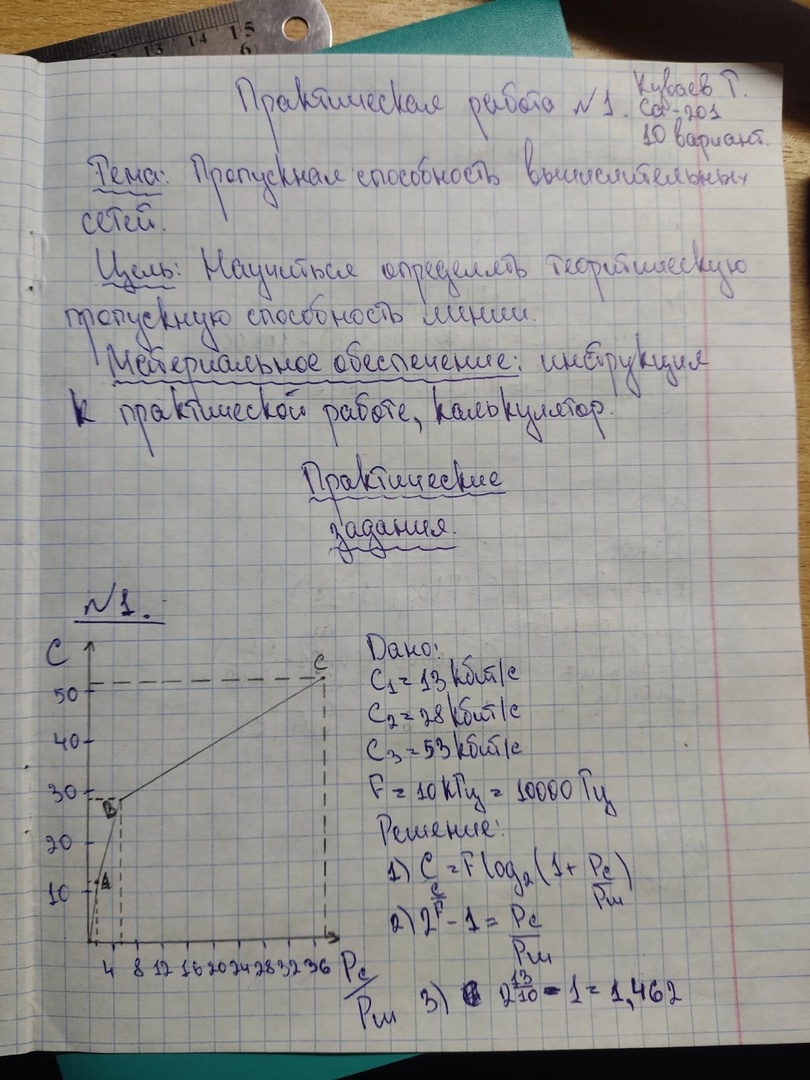 13 14 15
6
Практическая работа №1.
Куваев Т.
Са-201
10 вариант.
Тема: Пропускная способность вычислительных
сетей.
Цель: Научиться определять теоритическую
пропускную способность линии.
Материальное обеспечение: инструкция
к практической работе, калькулятор.
Практические
задания.
№1.
C
50
40
30
20
10
A
B
C
4 8 12 16 20 24 28 32 36 Pc/Pш
Дано:
C₁ = 13 кбит/с
C₂ = 28 кбит/с
C₃ = 53 кбит/с
F = 10 кГц = 10000 Гц
Решение:
1) C = F log₂(1 + Pc/Pш)
2) 2^(C/F) - 1 = Pc/Pш
3) 2^(13/10) - 1 = 1,462